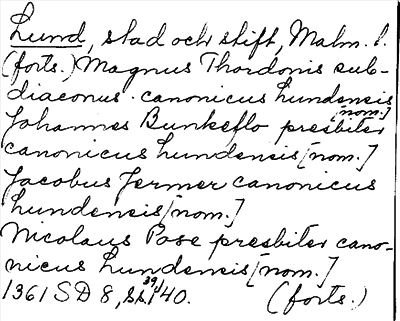 Lund, stad och stift, Malm. l.
(forts.) Magnus Thordonis sub-
diaconus canonicus Lundensis
[nom.]
Johannes Bunkeflo presbiter
canonicus Lundensis [nom.]
Jacobus Jermer canonicus
Lundensis [nom.]
Nicolaus Pose presbiter cano-
nicus Lundensis [nom.]
1361 SD 8, s. 139 f. 140. (forts.)